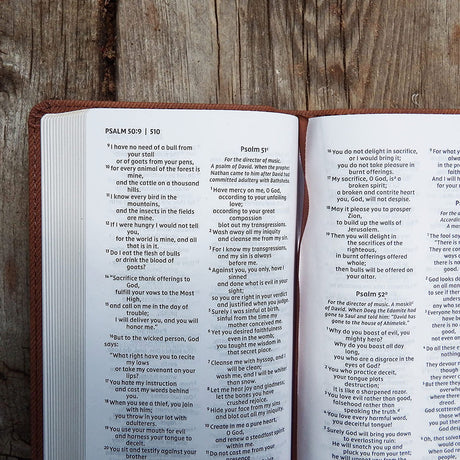 PSALM 50:9 | 510
9 I have no need of a bull from
your stall
or of goats from your pens,
10 for every animal of the forest is
mine,
and the cattle on a thousand
hills.
11 I know every bird in the
mountains,
and the insects in the fields
are mine.
12 If I were hungry I would not tell
you,
for the world is mine, and all
that is in it.
13 Do I eat the flesh of bulls
or drink the blood of
goats?
14 “Sacrifice thank offerings to
God,
fulfill your vows to the Most
High,
15 and call on me in the day of
trouble;
I will deliver you, and you will
honor me.”
16 But to the wicked person, God
says:
“What right have you to recite
my laws
or take my covenant on your
lips?
17 You hate my instruction
and cast my words behind
you.
18 When you see a thief, you join
with him;
you throw in your lot with
adulterers.
19 You use your mouth for evil
and harness your tongue to
deceit.
20 You sit and testify against your
brother
Psalm 51
For the director of music.
A psalm of David. When the prophet
Nathan came to him after David had
committed adultery with Bathsheba.
1 Have mercy on me, O God,
according to your unfailing
love;
according to your great
compassion
blot out my transgressions.
2 Wash away all my iniquity
and cleanse me from my sin.
3 For I know my transgressions,
and my sin is always
before me.
4 Against you, you only, have I
sinned
and done what is evil in your
sight;
so you are right in your verdict
and justified when you judge.
5 Surely I was sinful at birth,
sinful from the time my
mother conceived me.
6 Yet you desired faithfulness
even in the womb;
you taught me wisdom in
that secret place.
7 Cleanse me with hyssop, and I
will be clean;
wash me, and I will be whiter
than snow.
8 Let me hear joy and gladness;
let the bones you have
crushed rejoice.
9 Hide your face from my sins
and blot out all my iniquity.
10 Create in me a pure heart,
O God,
and renew a steadfast spirit
within me.
11 Do not cast me from your
16 You do not delight in sacrifice,
or I would bring it;
you do not take pleasure in
burnt offerings.
17 My sacrifice, O God, is
a
broken spirit;
a broken and contrite heart
you, God, will not despise.
18 May it please you to prosper
Zion,
to build up the walls of
Jerusalem.
19 Then you will delight in
the sacrifices of the
righteous,
in burnt offerings offered
whole;
then bulls will be offered on
your altar.
Psalm 52
For the director of music. A maskil
of David. When Doeg the Edomite had
gone to Saul and told him: “David has
gone to the house of Ahimelek.”
1 Why do you boast of evil, you
mighty hero?
Why do you boast all day
long,
you who are a disgrace in the
eyes of God?
2 You who practice deceit,
your tongue plots
destruction;
it is like a sharpened razor.
3 You love evil rather than good,
falsehood rather than
speaking the truth.
4 You love every harmful word,
you deceitful tongue!
5 Surely God will bring you down
to everlasting ruin:
He will snatch you up and
pluck you from your tent;
he will uproot you from the